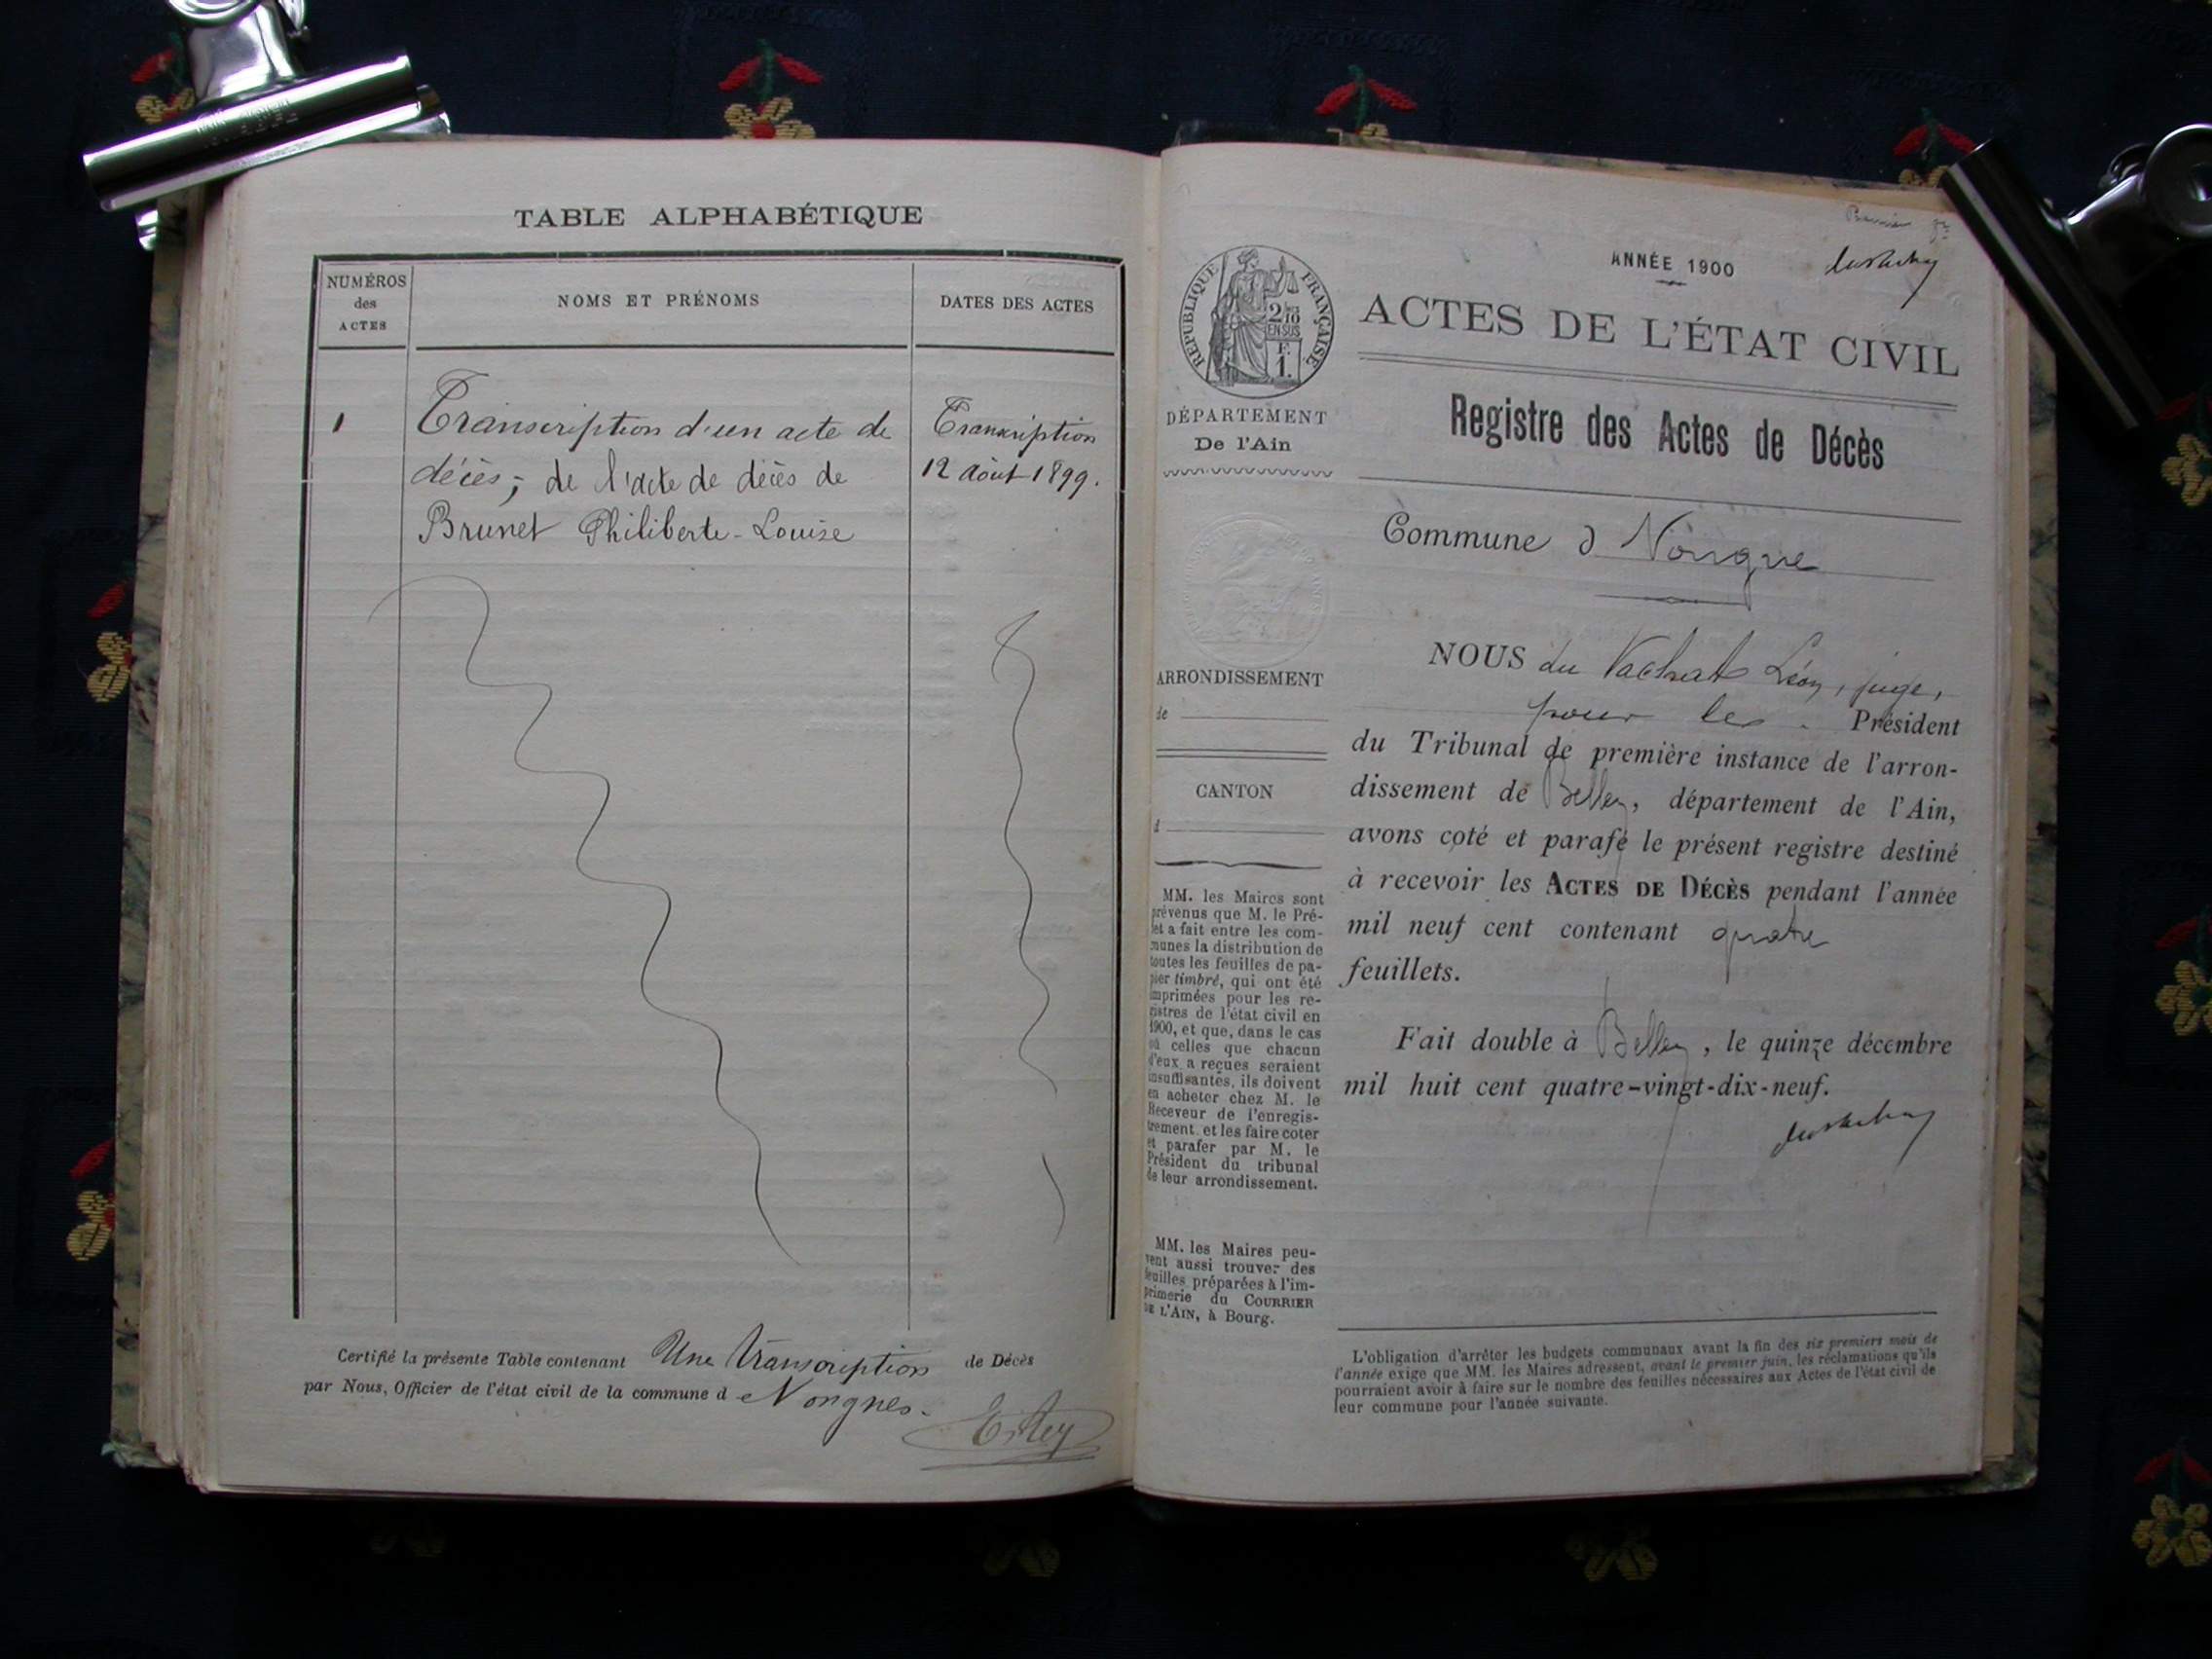 TABLE ALPHABÉTIQUE
NUMÉROS
des
ACTES
NOMS ET PRÉNOMS
DATES DES ACTES
1
Transcription d'un acte de
décès; de l'acte de décès de
Brunet Philiberte-Louise
Transcription
12 Août 1899.
Certifié la présente Table contenant Une transcription de Décès
par Nous, Officier de l'état civil de la commune d Nongnes.
ANNÉE 1900
RÉPUBLIQUE FRANÇAISE
2/10
EN SUS
F.
1.
ACTES DE L'ÉTAT CIVIL
DÉPARTEMENT
De l'Ain
Registre des Actes de Décès
Commune d
ARRONDISSEMENT
de
CANTON
d
MM. les Maires sont
prévenus que M. le Pré-
fet a fait entre les com-
munes la distribution de
toutes les feuilles de pa-
pier timbré, qui ont été
imprimées pour les re-
gistres de l'état civil en
1900, et que, dans le cas
où celles que chacun
d'eux a reçues seraient
insuffisantes, ils doivent
en acheter chez M. le
Receveur de l'enregis-
trement. et les faire coter
et parafer par M. le
Président du tribunal
de leur arrondissement.
MM. les Maires peu-
vent aussi trouver des
feuilles préparées à l'im-
primerie du COURRIER
DE L'AIN, à Bourg.
NOUS du Vachat Léon, juge,
pour le Président
du Tribunal de première instance de l'arron-
dissement de Belley, département de l'Ain,
avons coté et parafé le présent registre destiné
à recevoir les ACTES DE DÉCÈS pendant l'année
mil neuf cent contenant quatre
feuillets.
Fait double à Belley, le quinze décembre
mil huit cent quatre-vingt-dix-neuf.
L'obligation d'arrêter les budgets communaux avant la fin des six premiers mois de
l'année exige que MM. les Maires adressent, avant le premier juin, les réclamations qu'ils
pourraient avoir à faire sur le nombre des feuilles nécessaires aux Actes de l'état civil de
leur commune pour l'année suivante.